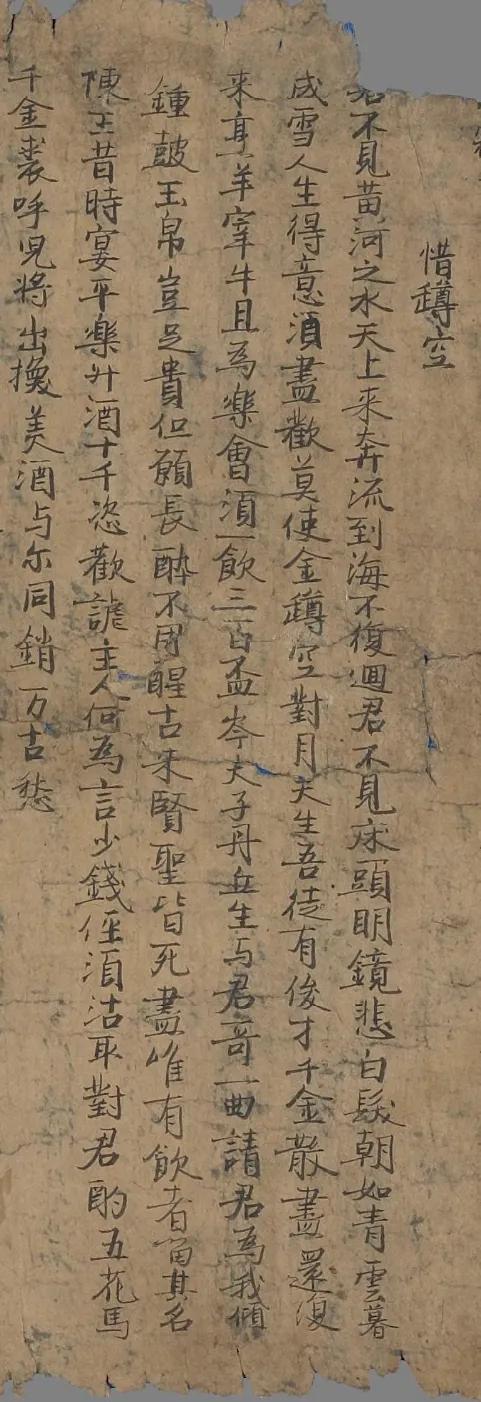 惜罇空
君不見黃河之水天上來奔流到海不復迴君不見床頭明鏡悲白髮朝如青雲暮
成雪人生得意須盡歡莫使金罇空對月天生吾徒有俊才千金散盡還復
来烹羊宰牛且為樂會須一飲三百盃岑夫子丹丘生与君哥一曲請君為我傾
鍾皷玉帛豈足貴但願長醉不用醒古来賢聖皆死盡唯有飲者留其名
陳王昔時宴平樂斗酒十千恣歡謔主人何為言少錢徑須沽取對君酌五花馬
千金裘呼兒將出換美酒与尓同銷万古愁